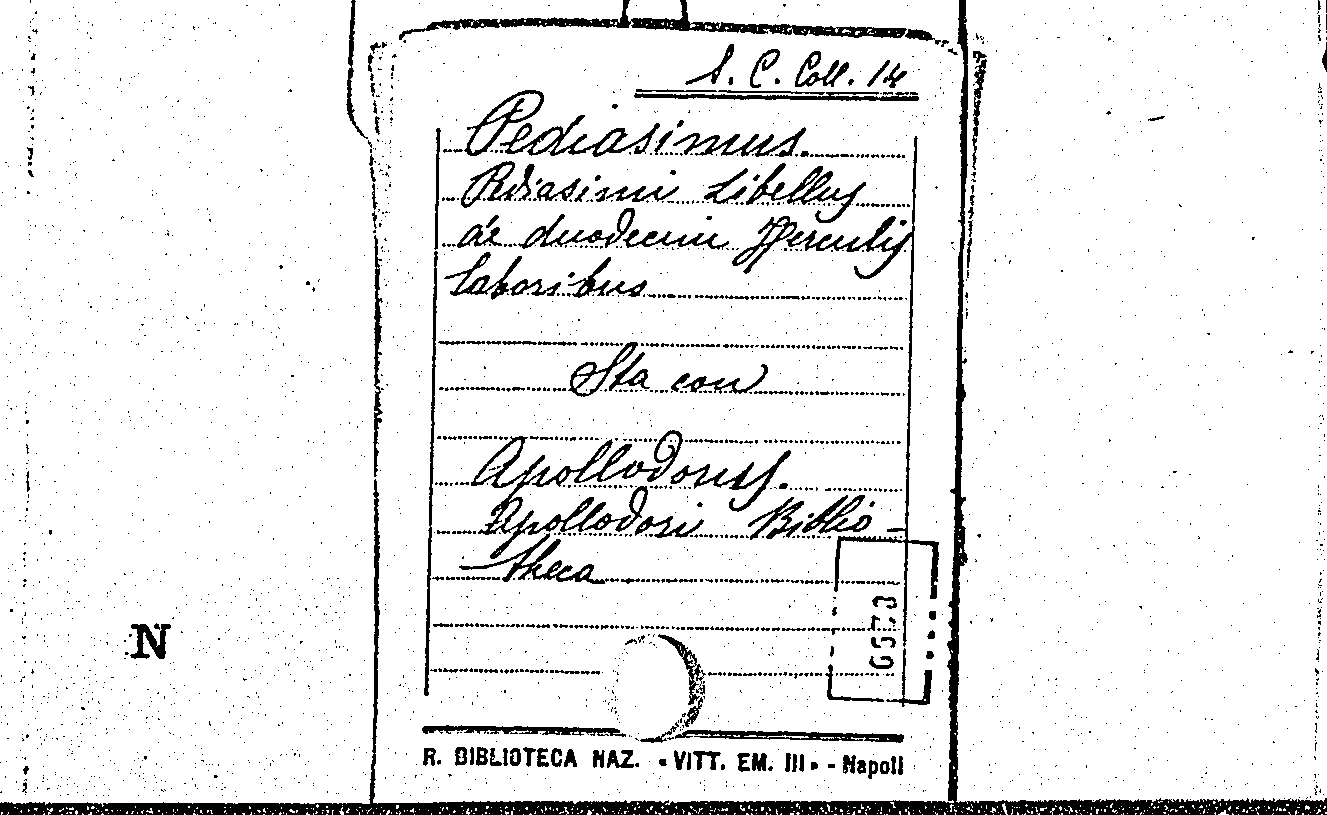 S. C. Coll. 14
Pediasimus.
Pediasimi Libellus
de duodecim Herculis
laboribus
Sta con
Apollodorus.
Apollodori Biblio-
theca
N
R. BIBLIOTECA NAZ. «VITT. EM. III» - Napoli